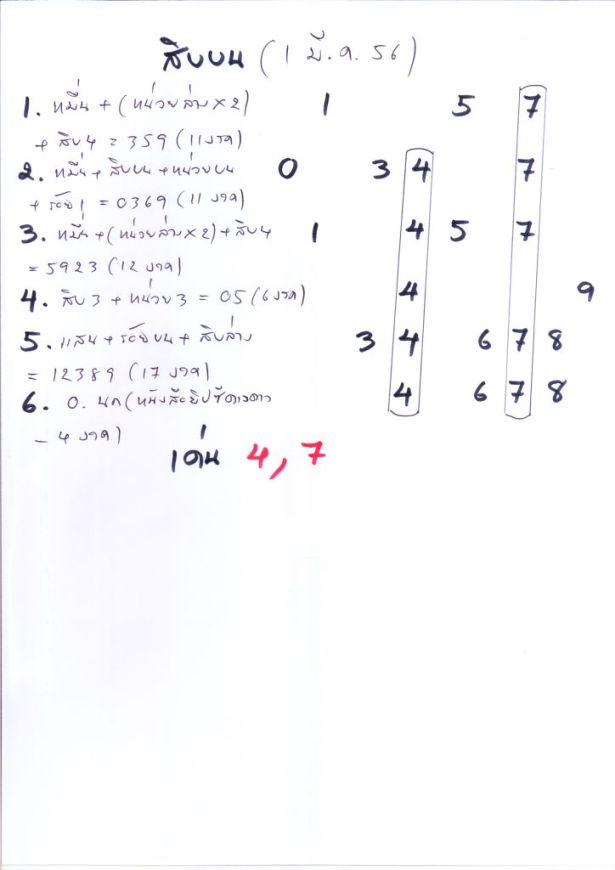 สิบบน (1 มี.ค. 56)
1. หมื่น + (หน่วยล่าง x 2) 1 5 7
+ สิบ 4 = 359 (11 งวด)
2. หมื่น + สิบบน + หน่วยบน 0 3 4 7
+ ร้อย 1 = 0369 (11 งวด)
3. หมื่น + (หน่วยล่าง x 2) + สิบ 4 1 4 5 7
= 5923 (12 งวด)
4. สิบ 3 + หน่วย 3 = 05 (6 งวด) 4 9
5. แสน + ร้อยบน + สิบล่าง 3 4 6 7 8
= 12389 (17 งวด)
6. อ. นก (หนังสือยิปซีดาวดาว 4 6 7 8
- 4 งวด)
เด่น 4, 7